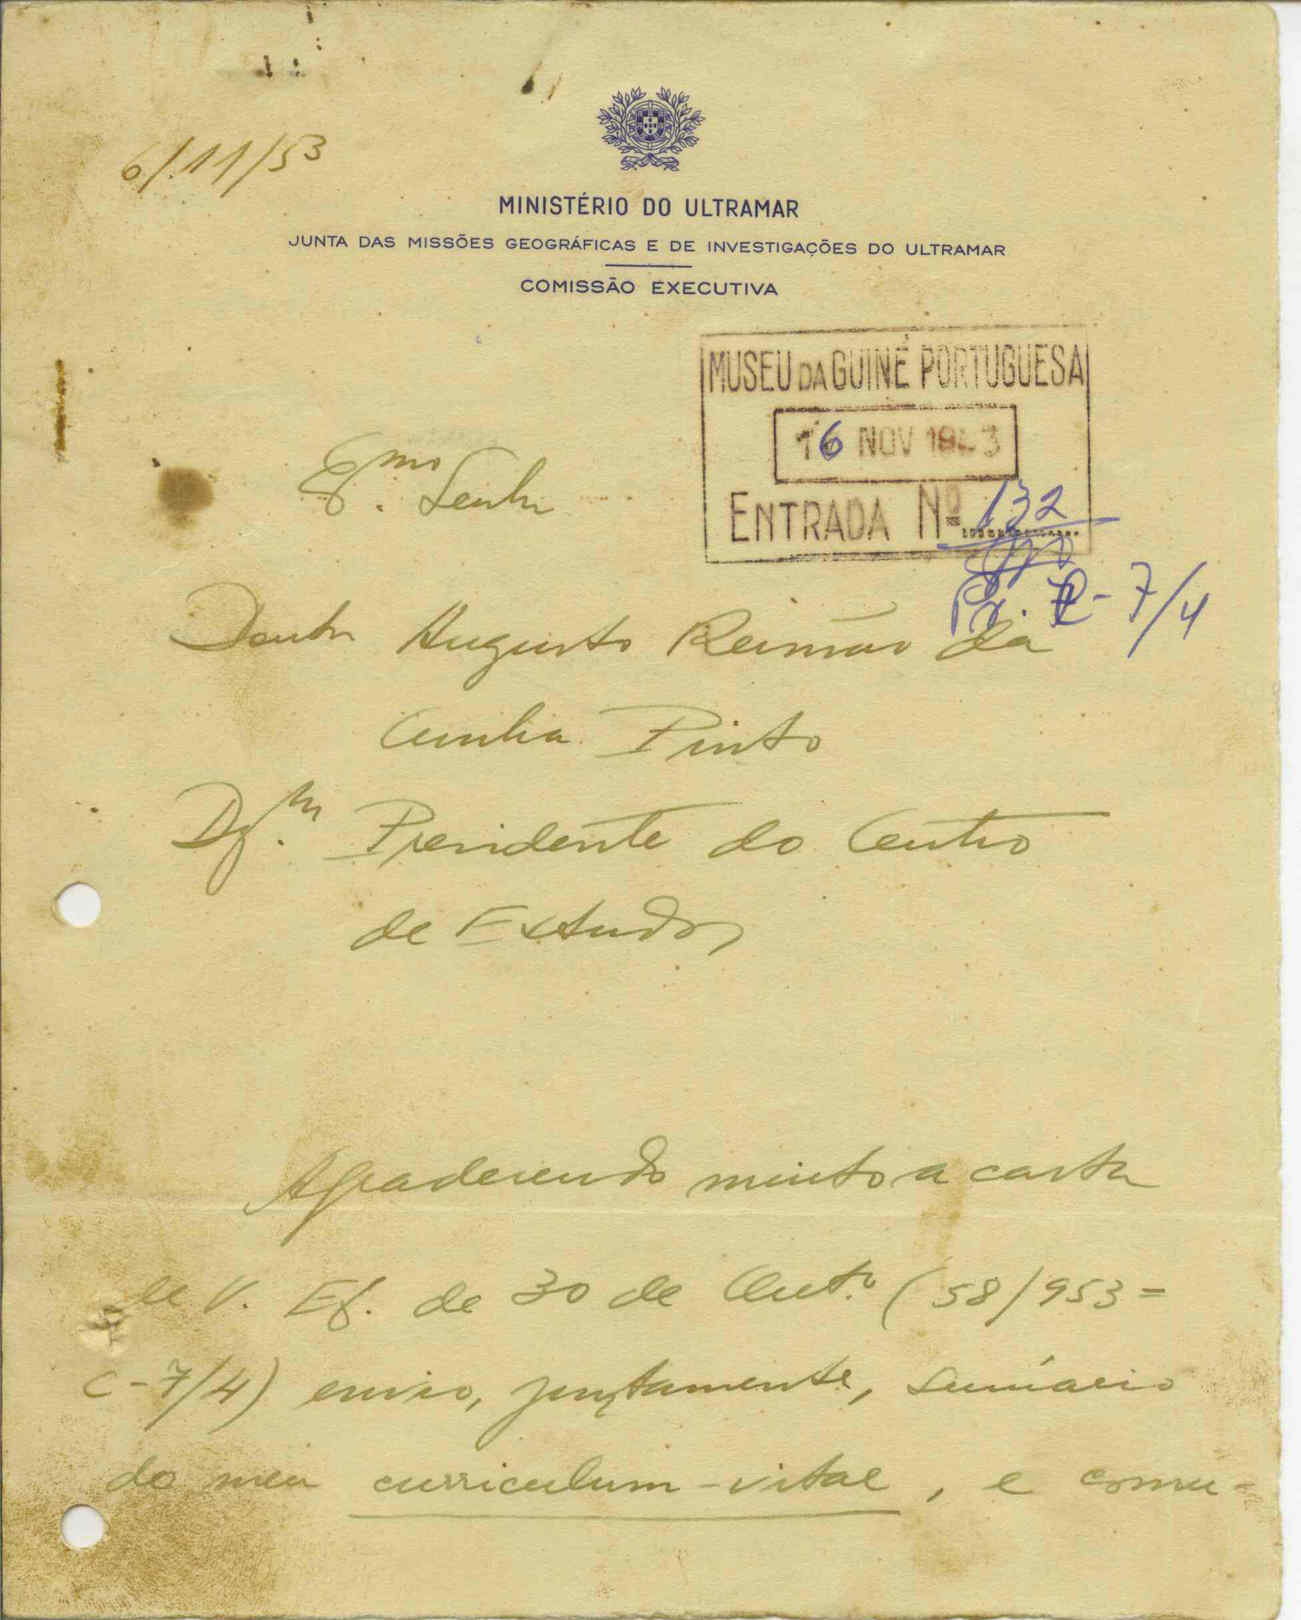 6/11/53
MINISTÉRIO DO ULTRAMAR
JUNTA DAS MISSÕES GEOGRÁFICAS E DE INVESTIGAÇÕES DO ULTRAMAR
COMISSÃO EXECUTIVA
MUSEU DA GUINÉ PORTUGUESA
16 NOV 1953
ENTRADA Nº 132
7/4
Senhor
Augusto Reimão da
Cunha Pinto
Presidente do Centro
de Estudos
Agradecendo muito a carta
de V. Ex. de 30 de Out.º (58/953=
C-7/4) envio, juntamente, sumário
do meu curriculum-vitae, e comu-